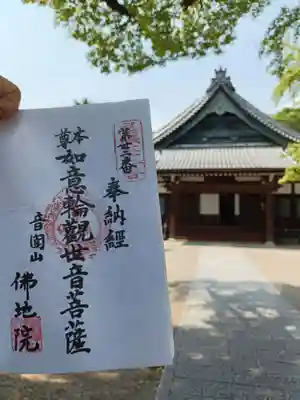 第廿二番
奉納経
本尊
如意輪觀世音菩薩
音圀山
佛地院